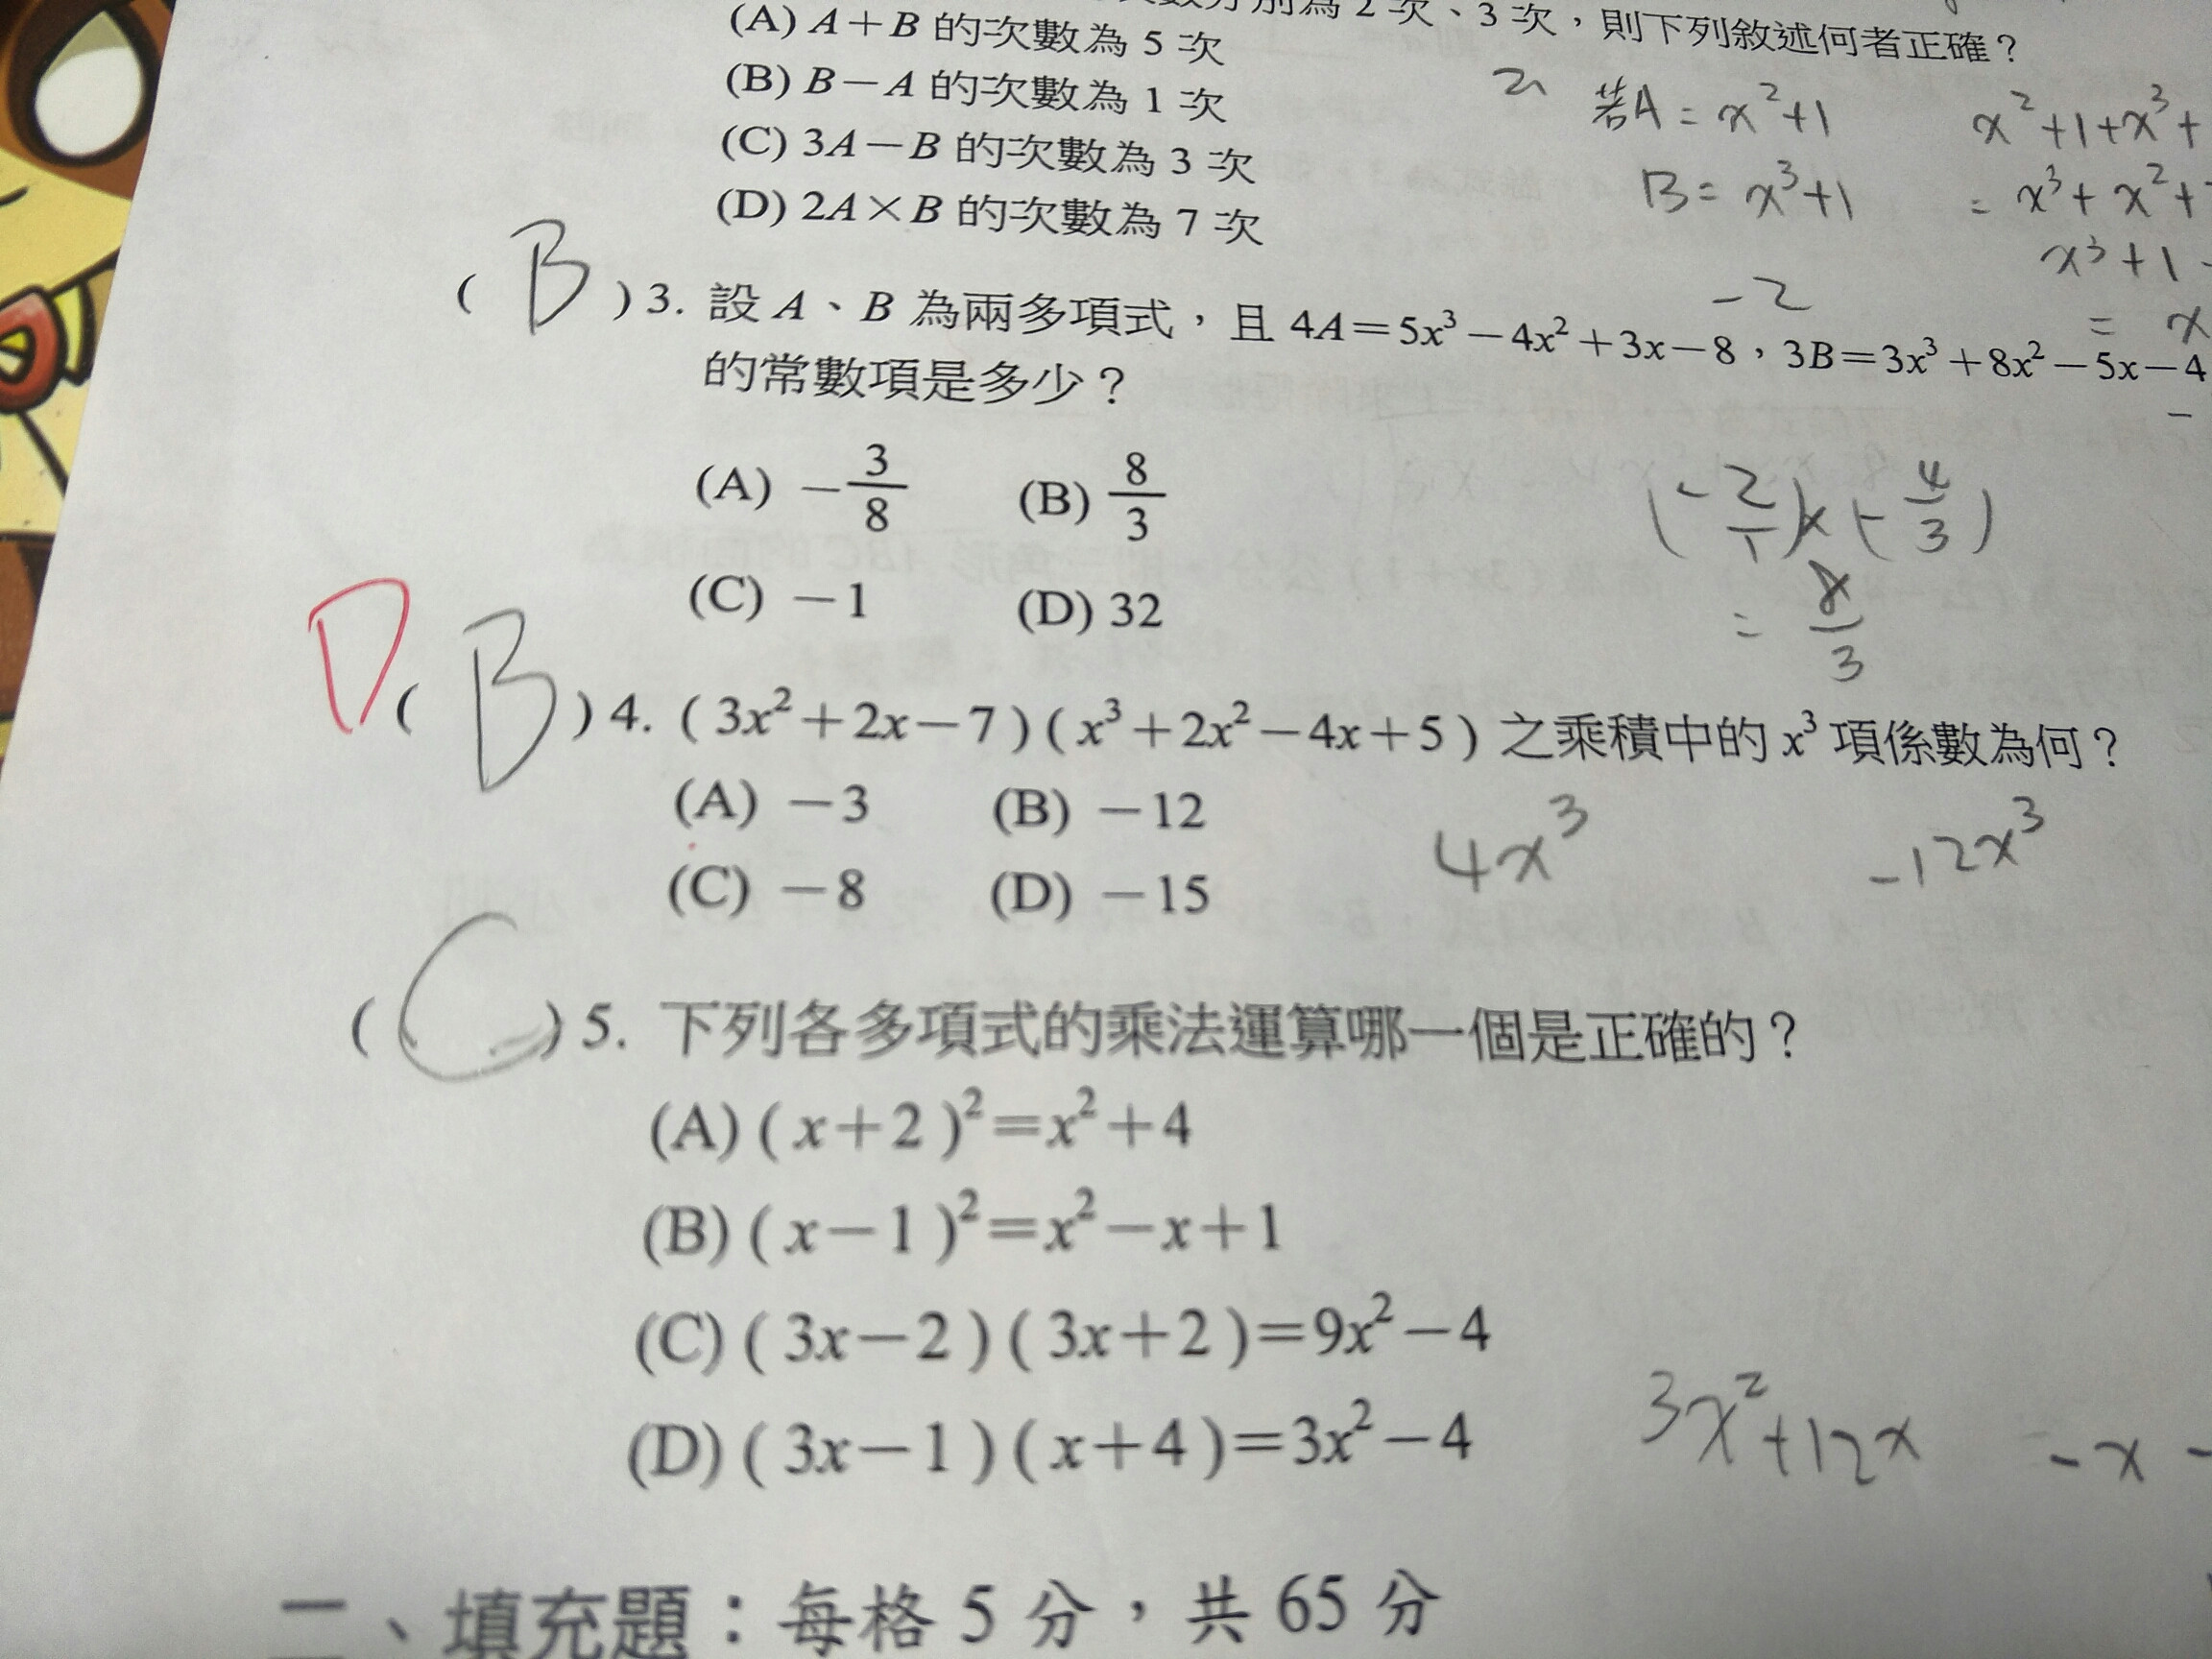 2次、3次，則下列敘述何者正確？
(A) A＋B 的次數為 5 次
(B) B－A 的次數為 1 次
(C) 3A－B 的次數為 3 次
(D) 2A×B 的次數為 7 次
若A = x²+1
B = x³+1
x²+1+x³+
= x³+x²+
x³+1
= x
-2
( B ) 3. 設 A、B 為兩多項式，且 4A＝5x³－4x²＋3x－8，3B＝3x³＋8x²－5x－4
的常數項是多少？
(A) －3/8 (B) 8/3
(C) －1 (D) 32
(-2/1)×(-4/3)
= 8/3
D ( B ) 4. ( 3x²＋2x－7 ) ( x³＋2x²－4x＋5 ) 之乘積中的 x³ 項係數為何？
(A) －3 (B) －12
(C) －8 (D) －15
4x³ -12x³
( C ) 5. 下列各多項式的乘法運算哪一個是正確的？
(A) ( x＋2 )²＝x²＋4
(B) ( x－1 )²＝x²－x＋1
(C) ( 3x－2 ) ( 3x＋2 )＝9x²－4
(D) ( 3x－1 ) ( x＋4 )＝3x²－4
3x²+12x -x -
二、填充題：每格 5 分，共 65 分